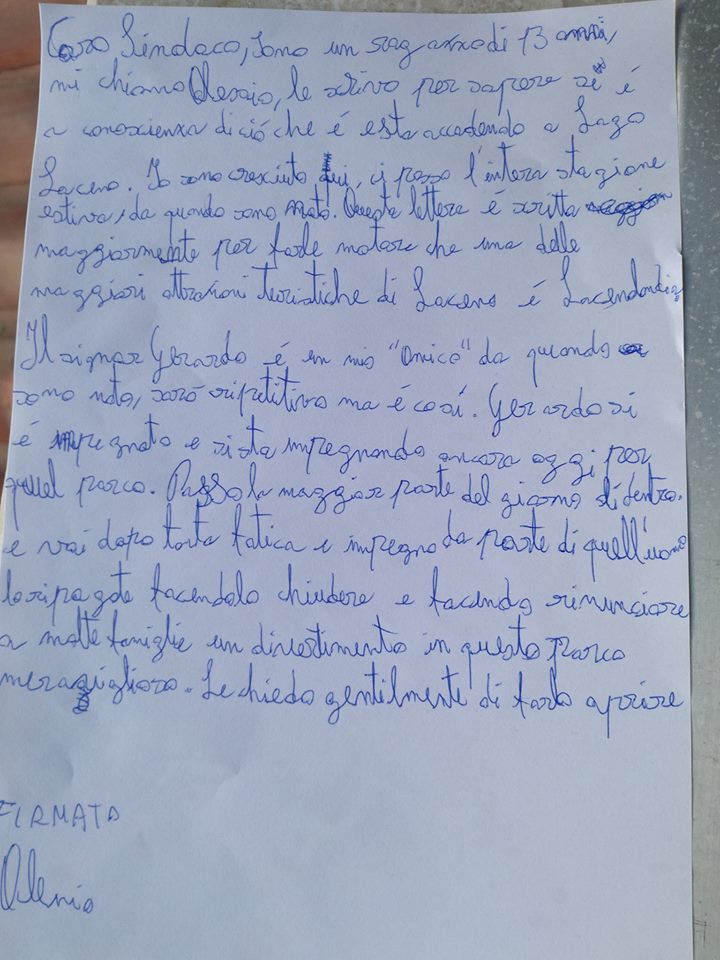 Caro Sindaco, sono un ragazzo di 13 anni,
mi chiamo Alessio, le scrivo per sapere se è
a conoscienza di ciò che è esta accadendo a Lago
Laceno. Io sono cresciuto qui, ci passo l'intera stagione
estiva, da quando sono nato. Questa lettera è scritta
maggiormente per farle notare che una delle
maggiori attrazioni turistiche di Laceno è Lacenolandia
Il signor Gerardo è un mio "amico" da quando
sono nato, sarò ripetitivo ma è così. Gerardo si
è impegnato e si sta impegnando ancora oggi per
quel parco. Passo la maggior parte del giorno di dentro.
e voi dopo tanta fatica e impegno da parte di quell'uomo
lo ripagate facendolo chiudere e facendo rinunciare
a molte famiglie un divertimento in questo parco
meraviglioso. Le chiedo gentilmente di farlo aprire
FIRMATO
Alessio